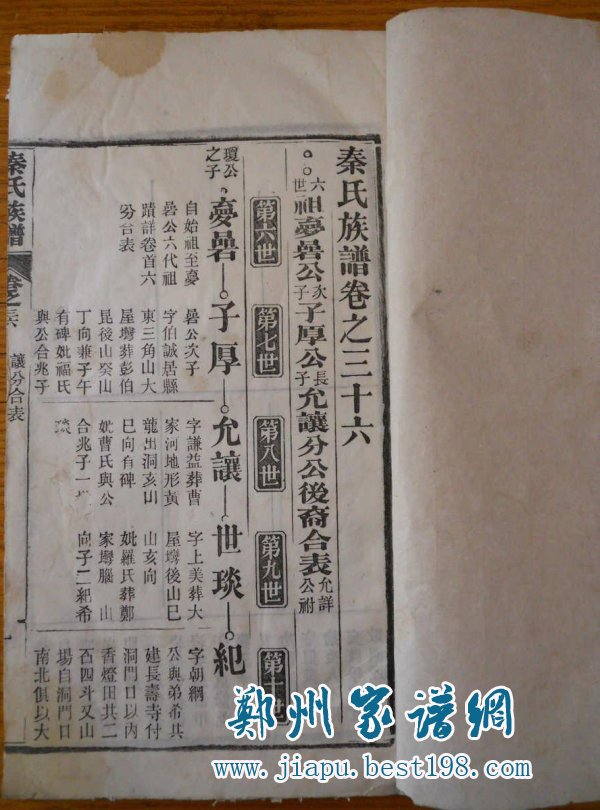 秦氏族譜卷之三十六
六世祖夢暑公次子子厚公長子允讓分公後裔合表
允詳公附
第六世
第七世
第八世
第九世
瓊公之子
子厚
允讓
世琰
紀
自始祖至
公六代祖
蹟詳卷首六
分合表
公次子
字伯誠居縣
東三角山大
屋塆葬彭伯
昆後山癸山
丁向兼子午
有碑妣福氏
與公合兆子
字謙益葬曹
家河地形黃
龍出洞亥山
巳向有碑
妣曹氏與公
合兆子一世
琰
字上美葬大
屋塆後山巳
山亥向
妣羅氏葬鄭
家塆腦 山
向子二紀希
字朝綱
公與弟希共
建長壽寺付
洞門口以內
香燈田共二
石四斗又山
場自洞門口
南北俱以大
秦氏族譜
讓分合表
鄭州家譜網
www.jiapu.best198.com